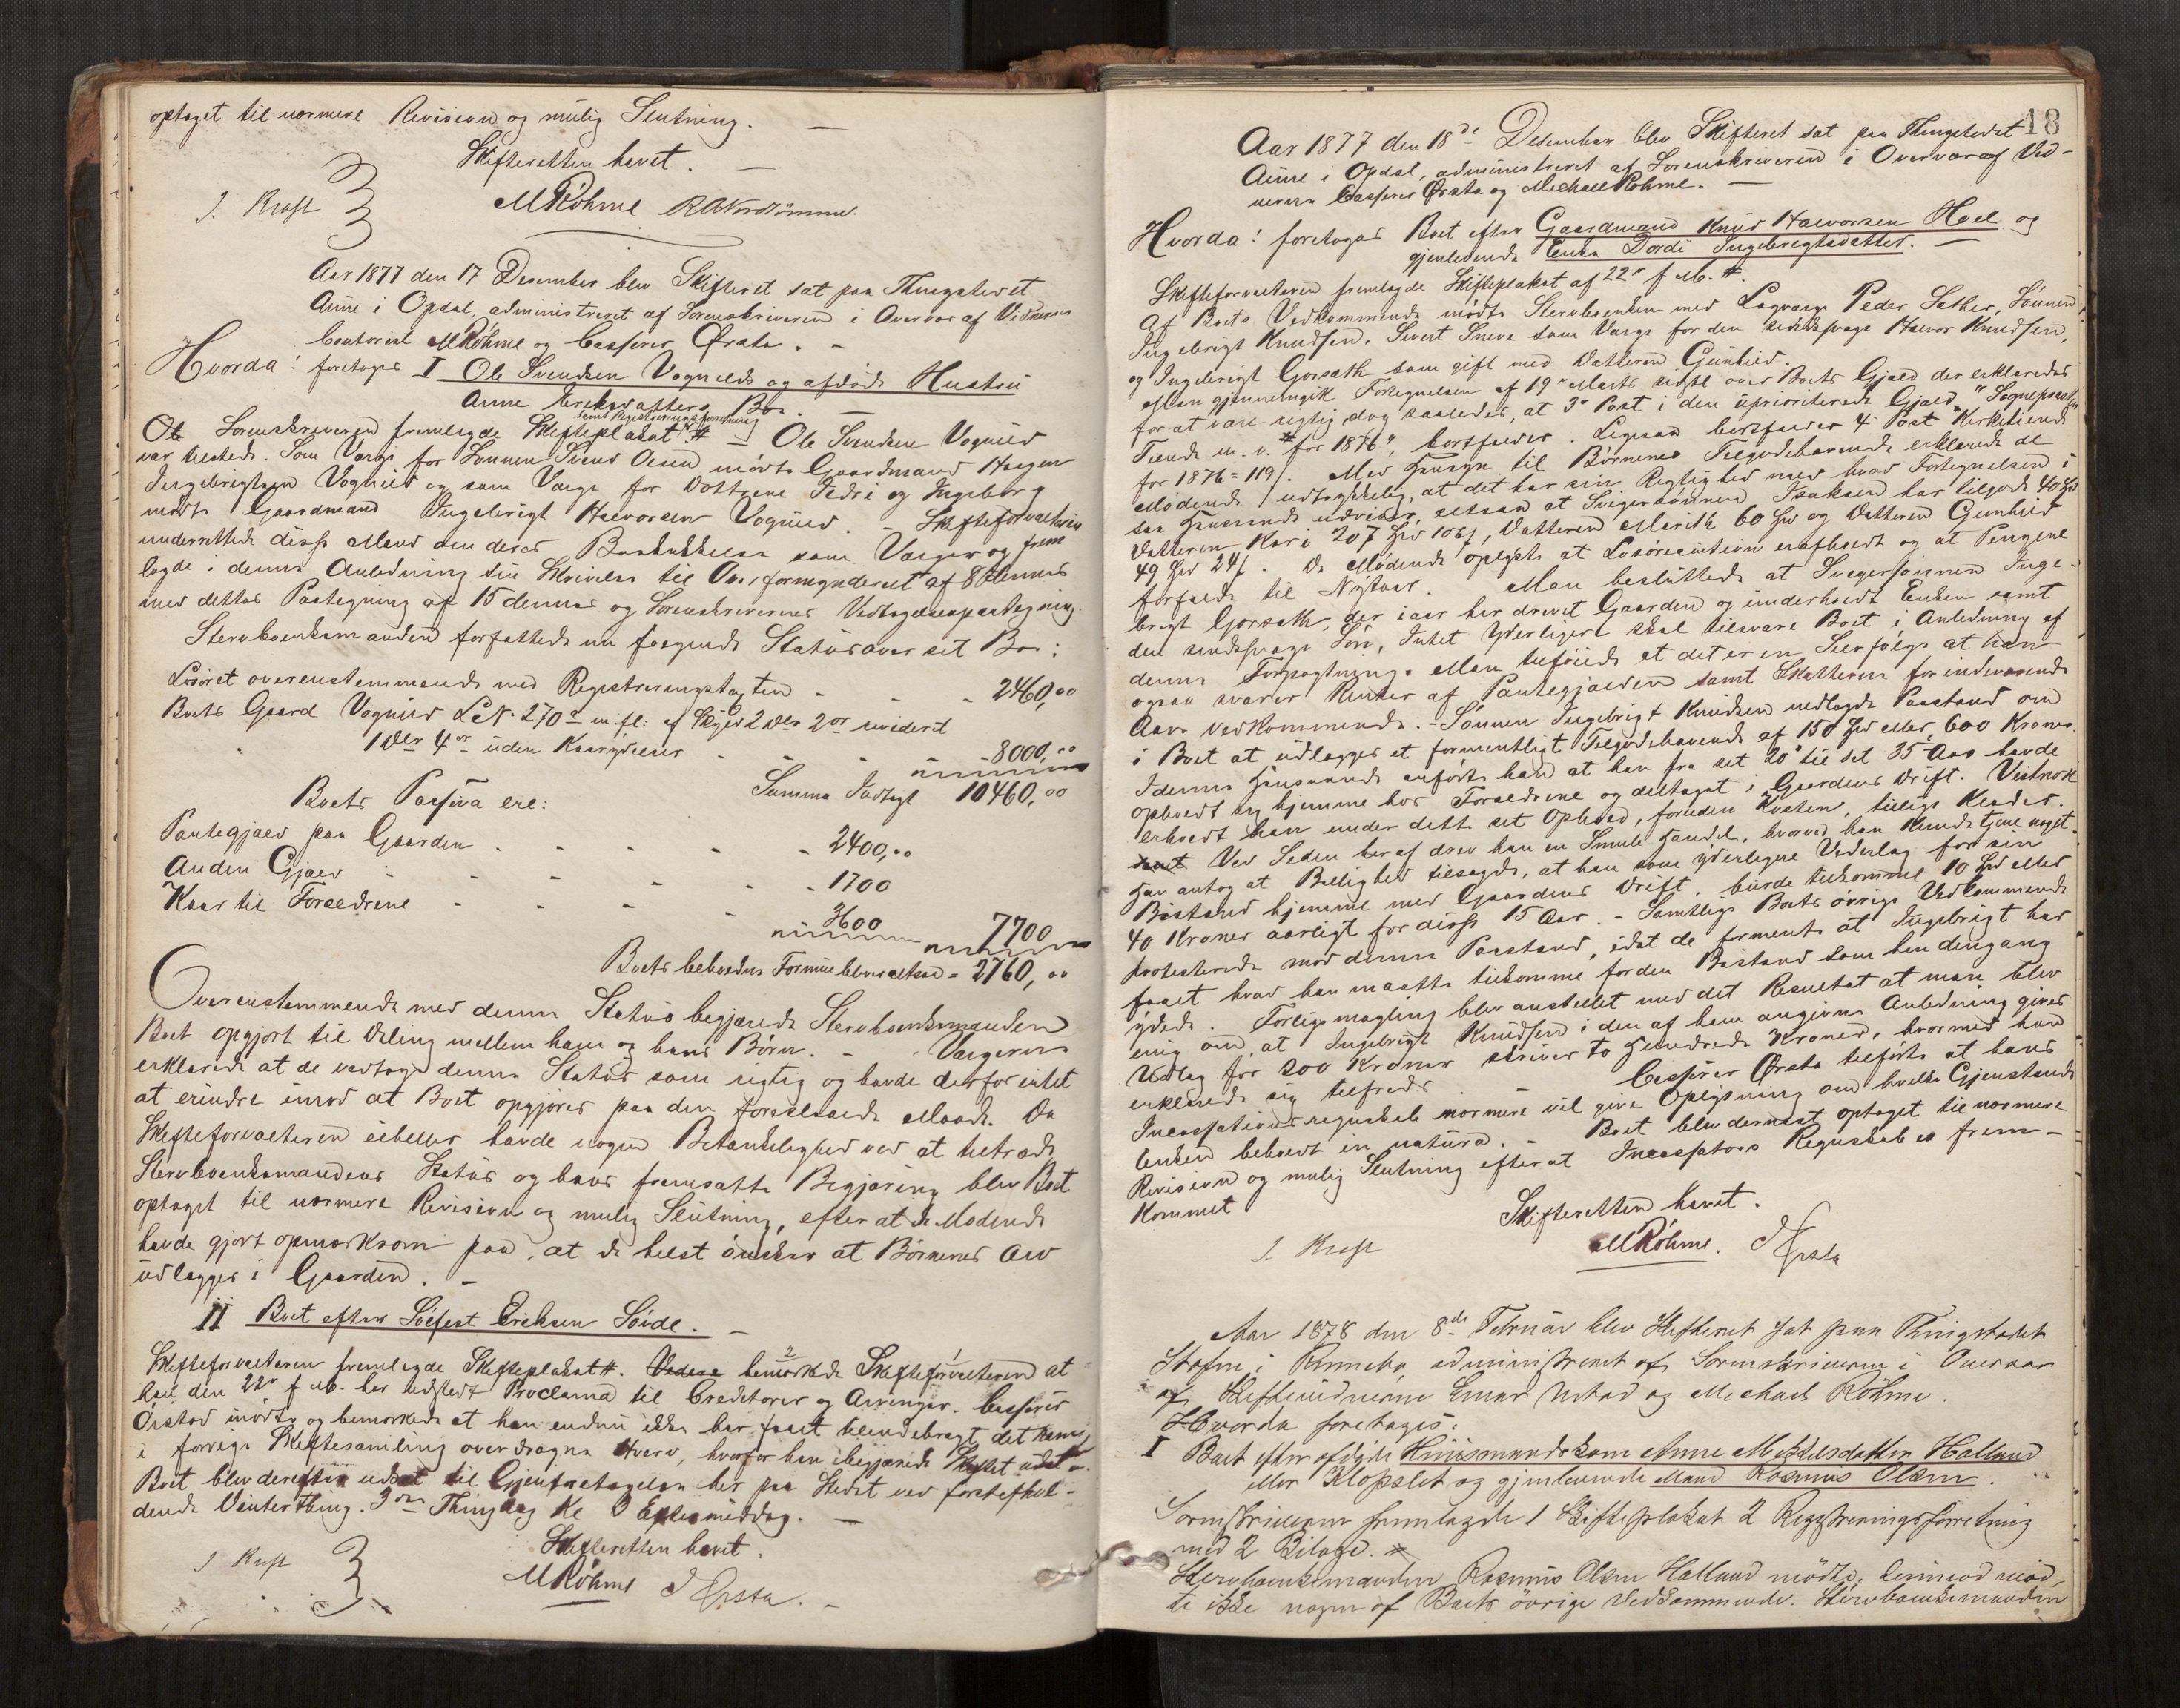 optaget til nærmere Revision og mulig Slutning. —
Skifteretten hævet. —
J. Kraft MRöhme
Aar 1877 den 17 December blev Skifteret sat paa Thingstedet
Aune i Opdal, administreret af Sorenskriveren i Overvær af Vidnerne
Contorist MRöhme og Casper Ørsta. -
Hvorda! foretoges I Ole Svendsen Vognild og afdöde Hustru
Anne Eriksdatters Bo. —
Sorenskriveren fremlagde Skifteplakat samt Registreringsforretning # — Ole Svendsen Vognild
var tilstede. Som Værge for Sønnen Svend Olsen mødte Gaardmand Haagen
Ingebrigtsen Vognild og som Værge for Døttrene Fedri og Ingeborg
mødte Gaardmand Ingebrigt Halvorsen Vognild. - Skifteforvalteren
underrettede disse Mænd om deres Beskikkelse som Værger og frem
lagde i denne Anledning sin Skrivelse til Overformynderiet af 8 dennes
med dettes Paategning af 15 dennes og Sorenskriverens Vedtagelsespaategning.
Stervboenkemanden forfattede nu følgende Status over sit Bo:
Løsøret overenstemmende med Registreringstagten - - - 2460,00
Boets Gaard Vognild LN. 270a m. fl: af Skyld 2 Dlr 2 ort revideret
1 Dlr 4 ort uden Kaarydelser - - - 8000,00
Summa Indtægt 10460,00
Boets Passiva ere:
Pantegjæld paa Gaarden - - - - 2400,00
Anden Gjæld - - - - - 1700
Kaar til Forældrene - - - 3600 7700
Boets beholdne Formue bliver altsaa = 2760,00
Overenstemmende med denne Status begjærede Stervboenkemanden
Boet opgjort til Deling mellem ham og hans Børn. - Værgerne
erklærede at de vedtoge denne Status som rigtig og havde derfor intet
at erindre imod at Boet opgjøres paa den foreslaaede Maade. Da
Skifteforvalteren eiheller havde nogen Betænkelighed ved at tiltræde
Stervboenkemandens Status og hans fremsatte Begjæring blev Boet
optaget til nærmere Revision og mulig Slutning, efter at de Mødende
havde gjort opmærksom paa, at de helst ønsker at Børnenes Arv
udlægges i Gaarden. -
II Boet efter Eriksen —
Skifteforvalteren fremlagde Skifteplakat #. Videre bemærkede Skifteforvalteren at
han den 22de f. M. har udstedt Proclama til Creditorer og Arvinger. Casper
Örstad mødte og bemærkede at han endnu ikke har faaet tilendebragt det ham
i forrige Skiftesamling overdragne Hverv, hvorfor han begjærede Skiftet udsat. -
Boet blev derefter udsat til Gjenforetagelse her paa Stedet ved førstafhol-
dende Vinterthing. 3die Thingdag Kl 3 Eftermiddag. —
Skifteretten hævet.
J Kraft MRöhme Ørsta. -
18
Aar 1877 den 18de December blev Skifteret sat paa Thingstedet
Aune i Opdal, administreret af Sorenskriveren i Overvær af Vid-
nerne Casper Ørsta og Michael Röhme. —
Hvorda! foretoges Boet efter Gaardmand Knud Halvorsen Hoel og
gjenlevende Enke Dordi Ingebrigtsdatter. —
Skifteforvalteren fremlagde Skifteplakat af 22de f. M. #.
Af Boets Vedkommende mødte Stervboenken med Lagværge Peder Sæther, Sønnen
Ingebrigt Knudsen. Sivert Sneve som Værge for den sindssvage Halvor Knudsen,
og Ingebrigt Gorsæth som gift med Datteren Gunhild.
Man gjennemgik Fortegnelsen af 19de Marts sidstl over Boets Gjæld der erklæredes
for at være rigtig dog saaledes, at 3de Post i den uprioriterede Gjæld "Sognepræstens
Tiende m. v. for 1876", bortfalder. Ligesaa bortfalder 4 Post Kirketiende
for 1876 = 119 ß. Med Hensyn til Børnenes Tilgodehavende erklærede de
Mødende udtrykkelig, at det har sin Rigtighed med hvad Fortegnelsen i
saa Henseende udviser, altsaa at Svigersønnen Isaksen har tilgode 40 Spd
Datteren Kari 207 Spd 106 ß, Datteren Marith 60 Spd og Datteren Gunhild
49 Spd 24 ß. De Mødende oplyste at Løsøreauction er afholdt og at Pengene
forfalde til Nytaar. Man besluttede at Svigersønnen Inge-
brigt Gorsæth, der iaar har drevet Gaarden og underholdt Enken samt
den sindssvage Søn, Intet yderligere skal tilsvare Boet i Anledning af
denne Forpagtning. Man tilføiede at det er en Selvfølge at han
ogsaa svarer Renter af Pantegjælden samt Skatterne for indeværende
Aars Vedkommende. - Sønnen Ingebrigt Knudsen nedlagde Paastand om
i Boet at udlægges et formentligt Tilgodehavende af 150 Spd eller 600 Kroner.
I denne Henseende anførte han at han fra sit 20de til sit 35 Aar havde
opholdt sig hjemme hos Forældrene og deltaget i Gaardens Drift. Vistnok
erholdt han under dette sit Ophold, foruden Kosten, tillige Klæder.
Ved Siden heraf drev han en Smule Handel, hvorved han kunde tjene noget.
Han antog at Billighed tilsagde, at han som yderligere Vederlag for sin
Bistand hjemme med Gaardens Drift, burde tilkomme 10 Spd eller
40 Kroner aarligt for disse 15 Aar. - Samtlige Boets øvrige Vedkommende
protesterede mod denne Paastand, idet de formente at Ingebrigt har
faaet hvad han maatte tilkomme for den Bistand som han dengang
ydede. Forligsmægling blev anstillet med det Resultat at man blev
enig om, at Ingebrigt Knudsen i den af ham angivne Anledning gives
Udlæg for 200 Kroner skriver to Hundrede Kroner, hvormed han
erklærede sig tilfreds. - Casper Ørsta tilførte at hans
Incassationsregnskab nærmere vil give Oplysning om hvilke Gjenstande
Enken beholdt in natura. - Boet blev dernæst optaget til nærmere
Revision og mulig Slutning efter at Incassators Regnskab er frem-
kommet
Skifteretten hævet.
J. Kraft MRöhme. Ørsta
Aar 1878 den 8de Februar blev Skifteret sat paa Thingstedet
Stufne i Rennebo, administreret af Sorenskriveren i Overvær
af Skiftevidnerne Einar og Michael Röhme.
Hvorda foretoges:
I Boet efter afdöde Huusmandskone Anne Mikkelsdatter Halland
eller Klopslet og gjenlevende Mand Rasmus Olsen.
Sorenskriveren fremlagde 1 Skifteplakat 2 Registreringsforretning
med 2 Bilage. #
Stervboenkemanden Rasmus Olsen Halland mødte, derimod mød-
te ikke nogen af Boets övrige Vedkommende. Stervboenkemanden